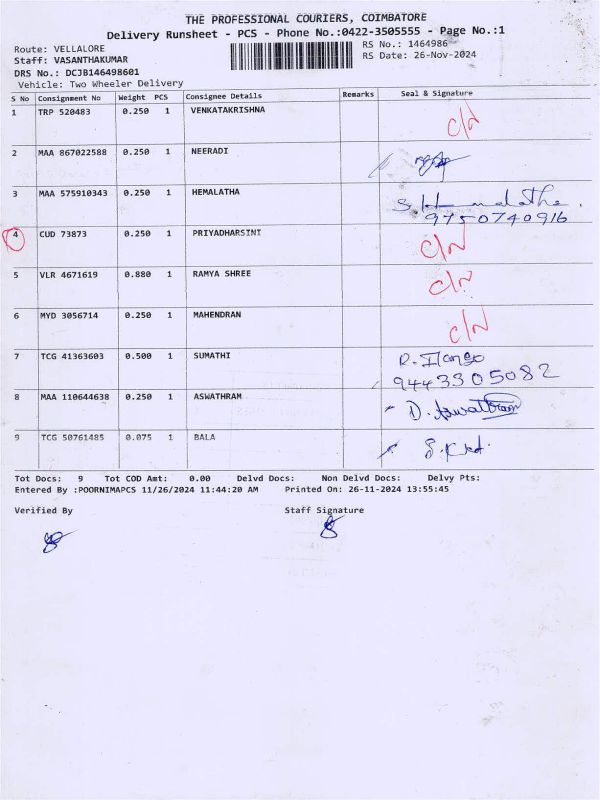 THE PROFESSIONAL COURIERS, COIMBATORE
Delivery Runsheet - PCS - Phone No.:0422-3505555 - Page No.:1
Route: VELLALORE RS No.: 1464986
Staff: VASANTHAKUMAR RS Date: 26-Nov-2024
DRS No.: DCJB146498601
Vehicle: Two Wheeler Delivery
S No Consignment No Weight PCS Consignee Details Remarks Seal & Signature
1 TRP 520483 0.250 1 VENKATAKRISHNA C/N
2 MAA 867022588 0.250 1 NEERADI
3 MAA 575910343 0.250 1 HEMALATHA
9750740916
4 CUD 73873 0.250 1 PRIYADHARSINI C/N
5 VLR 4671619 0.880 1 RAMYA SHREE C/N
6 MYD 3056714 0.250 1 MAHENDRAN C/N
7 TCG 41363603 0.500 1 SUMATHI
9443305082
8 MAA 110644638 0.250 1 ASWATHRAM D. Aswathram
9 TCG 50761485 0.075 1 BALA
Tot Docs: 9 Tot COD Amt: 0.00 Delvd Docs: Non Delvd Docs: Delvy Pts:
Entered By :POORNIMAPCS 11/26/2024 11:44:20 AM Printed On: 26-11-2024 13:55:45
Verified By Staff Signature